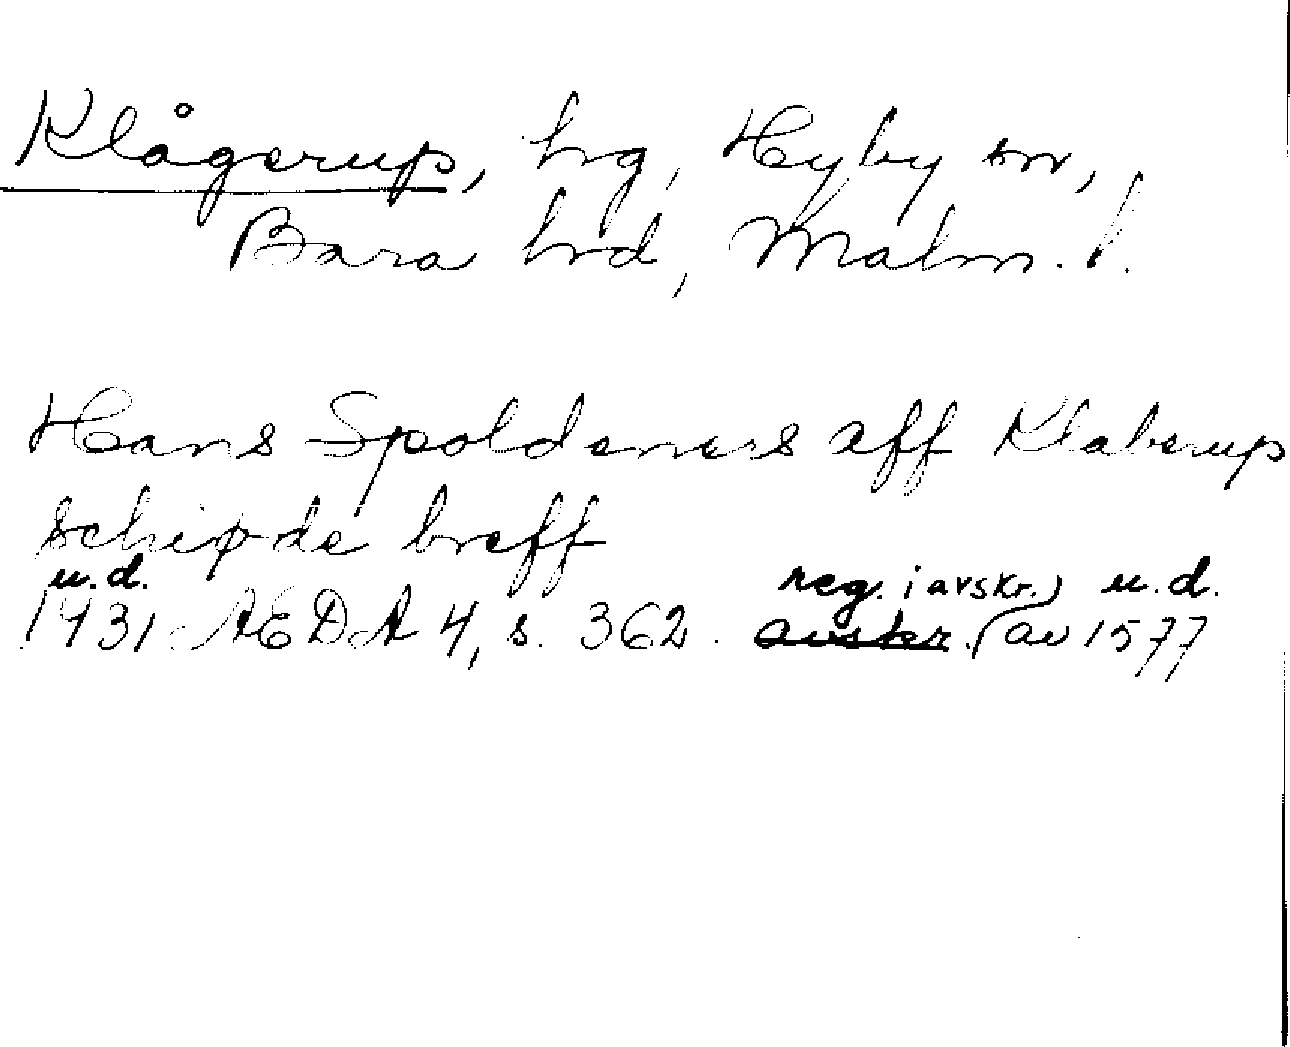 Klågerup, hg, Hyby sn,
Bara hrd, Malm. l.
Hans Spoldeners aff Klaberup
schipde breff
u.d. reg. i avskr.) u.d.
1431 ÆDA 4, s. 362. avskr. (av 1577